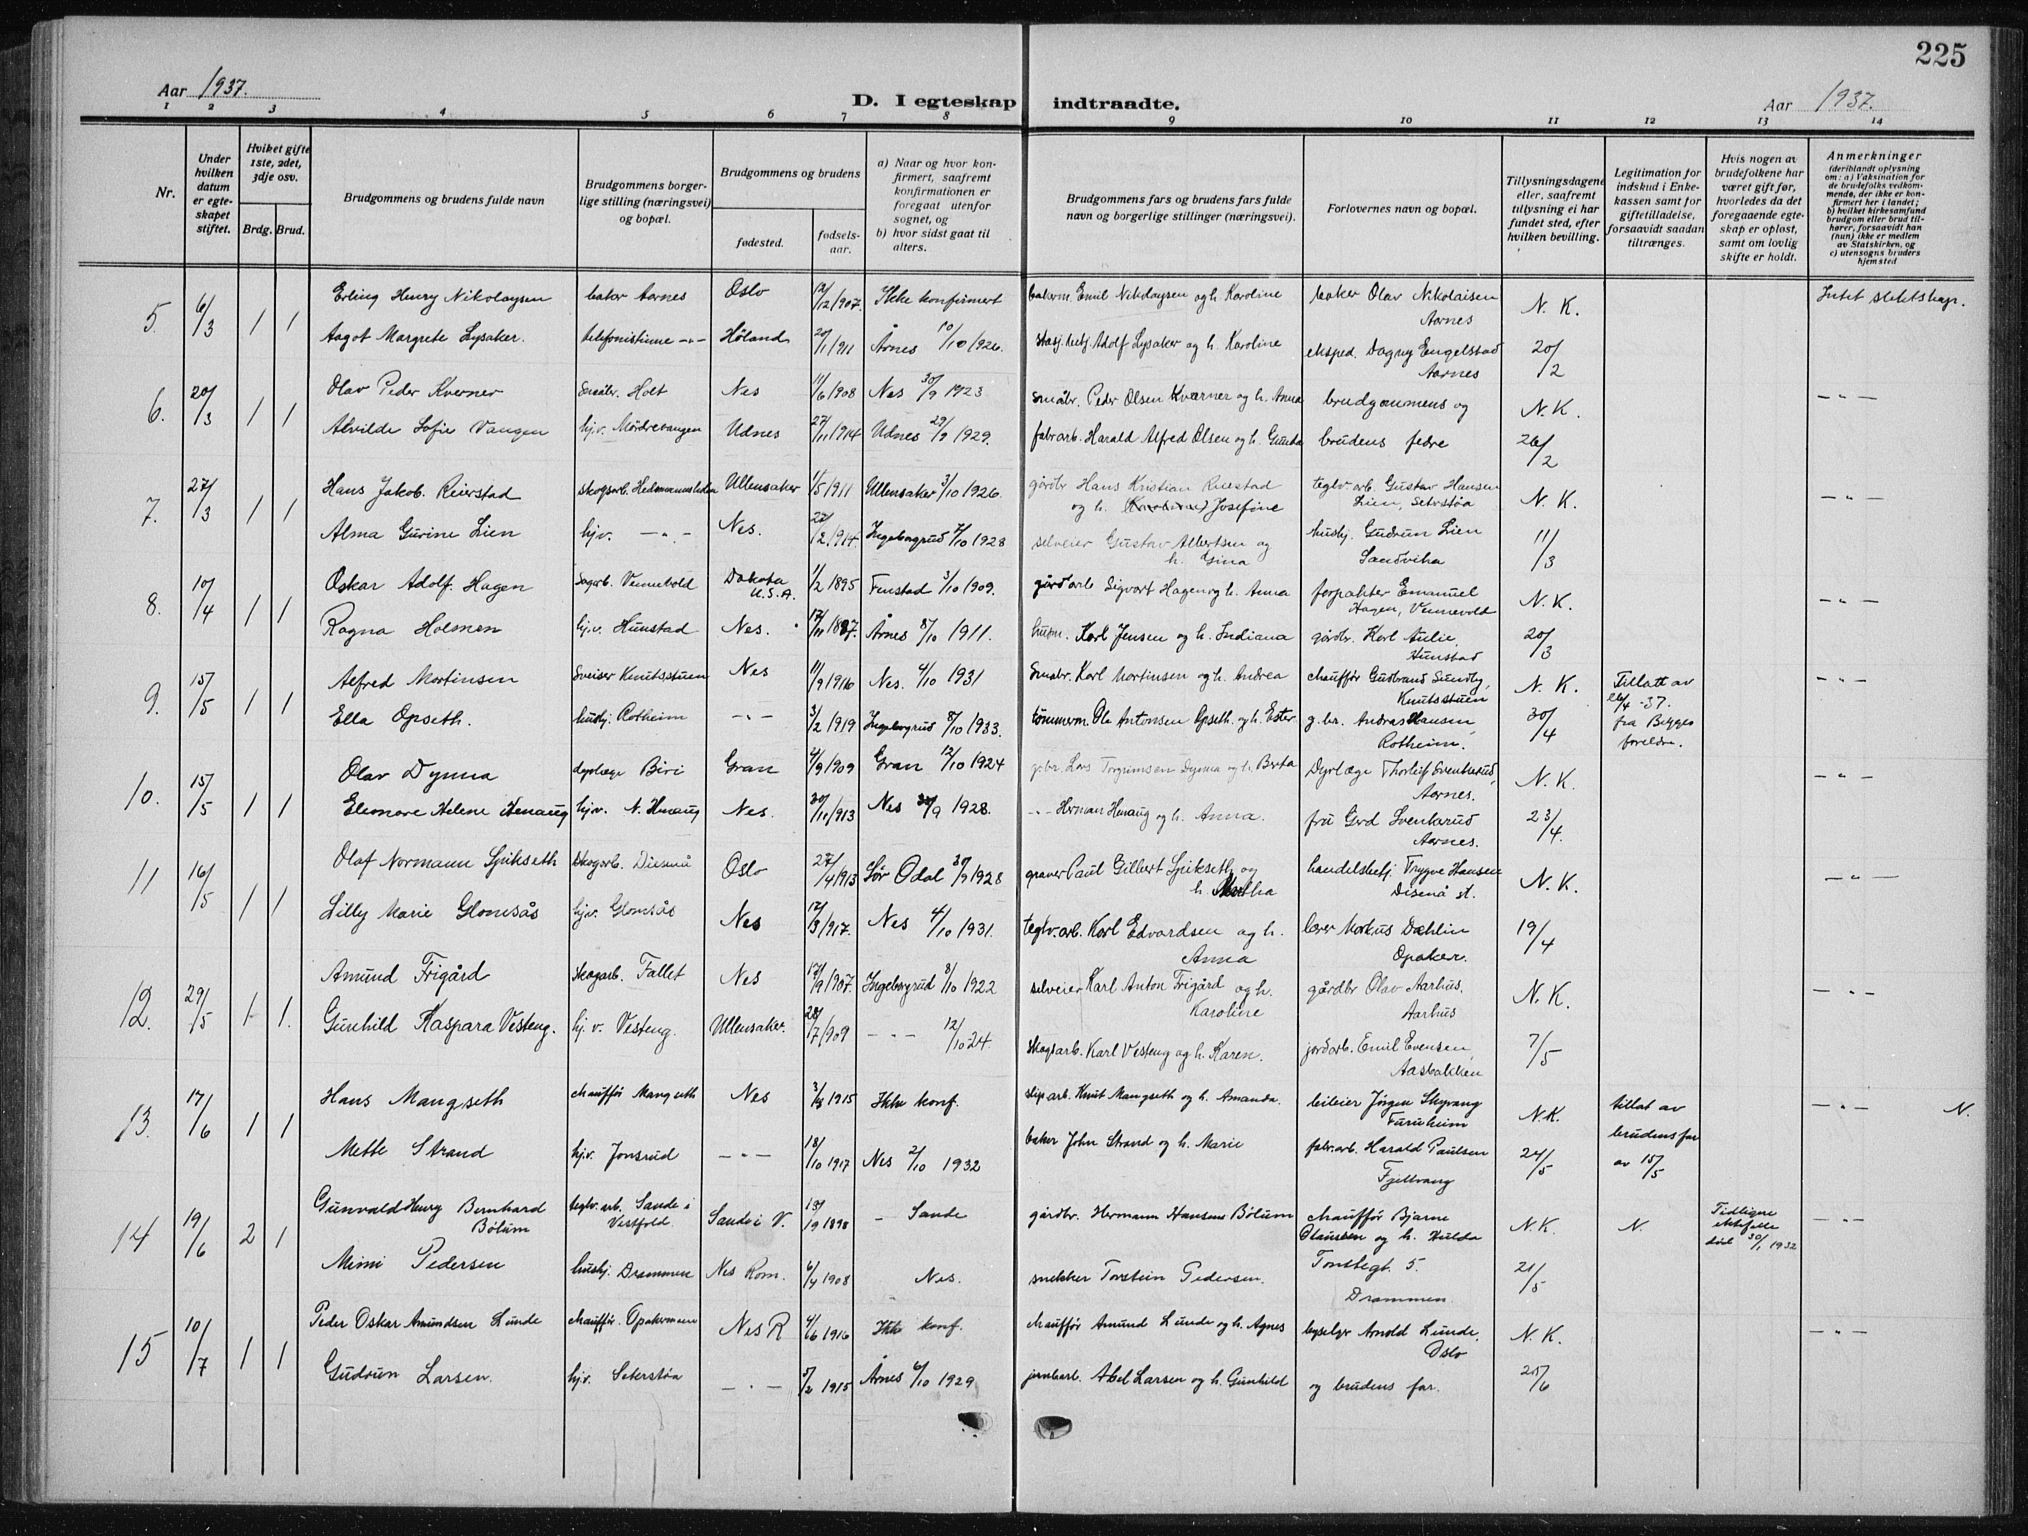 225
Aar 1937.
D. I egteskap indtraadte.
Aar 1937.
1 2 3 4 5 6 7 8 9 10 11 12 13 14
Nr.
Under hvilken datum er egteskapet stiftet.
Hvilket gifte 1ste, 2det, 3dje osv.
Brdg. Brud.
Brudgommens og brudens fulde navn
Brudgommens borgerlige stilling (næringsvei) og bopæl.
Brudgommens og brudens
fødested.
fødselsaar.
a) Naar og hvor konfirmert, saafremt konfirmationen er foregaat utenfor sognet, og
b) hvor sidst gaat til alters.
Brudgommens fars og brudens fars fulde navn og borgerlige stillinger (næringsvei).
Forlovernes navn og bopæl.
Tillysningsdagene eller, saafremt tillysning ei har fundet sted, efter hvilken bevilling.
Legitimation for indskud i Enkekassen samt for giftetilladelse, forsaavidt saadan tiltrænges.
Hvis nogen av brudefolkene har været gift før, hvorledes da det foregaaende egteskap er opløst, samt om lovlig skifte er holdt.
Anmerkninger (deriblandt oplysning om: a) Vaksination for de brudefolks vedkommende, der ikke er konfirmert her i landet; b) hvilket kirkesamfund brudgom eller brud tilhører, forsaavidt han (hun) ikke er medlem av Statskirken, og c) utensogns bruders hjemsted
5. 6/3 1 1 Erling Henry Nikolaysen baker Aarnes Oslo 12/12 1907. Ikke konfirmert bakerm. Emil Nikolaysen og h. Karoline baker Olav Nikolaisen Aarnes N. K. Intet slektskap.
Aagot Margrete Lysaker. telefonistinne -"- Høland 20/11 1911 Årnes 10/10 1926. stasj. betj. Adolf Lysaker og h. Karoline eksped. Dagny Engelstad Aarnes 20/2
6. 20/3 1 1 Olav Peder Kverner Småbr. Holt Nes 11/6 1908 Nes 30/9 1923 småbr. Peder Olsen Kværner og h. Anna brudgommens og N. K. -"-
Alvilde Sofie Vangen hj.v. Mødrevangen Udnes 27/11 1914 Udnes 29/9 1929. fabr.arb. Harald Alfred Olsen og h. Gunda brudens fedre 26/2
7. 27/3 1 1 Hans Jakob Reierstad skogsarb. Ullensaker 1/5 1911 Ullensaker 3/10 1926. gårdbr Hans Kristian Reiestad og h. Josefine teglv. arb. Gustav Hansen Lien, Seterstøa N. K. -"-
Alma Gurine Lien hjv. -"- Nes. 22/2 1914. Ingeborgrud 7/10 1928 selveier Gustav Albertsen og h. Gina hushj. Gudrun Lien Sandvika 11/3
8. 10/4 1 1 Oskar Adolf Hagen Sagarb. Vennevold Dakota U.S.A. 1/2 1895 Fenstad 3/10 1909. gårdarb Sigvart Hagen og h. Anna forpakter Emanuel Hagen, Vennevold N. K. -"-
Ragna Holmen hj.v. Hunstad Nes. 17/11 1897. Årnes 8/10 1911. husm. Karl Jensen og h. Indiana gårdbr. Karl Aulie, Hunstad 20/3
9. 15/5 1 1 Alfred Martinsen Sveiser Knutsstuen Nes 11/9 1916 Nes. 4/10 1931 Småbr. Karl Martinsen og h. Andrea chauffør Gudbrand Sundby, Knutsstuen N. K. Tillatt av 26/4 -37. -"-
Ella Opseth. hushj. Rotheim -"- 3/2 1919 Ingeborgrud 8/10 1933. tømmerm. Ole Antonsen Opseth og h. Ester g.br. Andras Hansen, Rotheim. 30/4 fra Begges foreldre.
10. 15/5 1 1 Olav Dynna dyrlæge Biri Gran 4/9 1909 Gran 12/10 1924 g.br. Lars Torgrimsen Dynna og h. Berta Dyrlæge Thorleif Svenkerud, Aarnes. N. K. -"-
Eleonore Helene Henaug hjv. N. Henaug Nes. 30/11 1913 Nes 30/9 1928. -"- Herman Henaug og h. Anna. fru Gerd Svenkerud Aarnes. 23/4.
11 16/5 1 1 Olaf Normann Sjikseth skogarb. Disenå Oslo 27/4 1913 Sør Odal 30/9 1928 graver Paul Gilbert Sjikseth og h. Martha handelsbetj. Trygve Hansen Disenå st. N. K. -"-
Lilly Marie Glomsås hj.v. Glomsås Nes 12/3 1917. Nes 4/10 1931. teglv.arb. Karl Edvardsen og h. Anna lærer Markus Dahlin Opaker. 19/4
12. 29/5 1 1. Amund Frigård skogarb. Fallet Nes 17/9 1907. Ingeborgrud 8/10 1922 selveier Karl Anton Frigård og h. Karoline gårdbr Olav Aarhus. Aarhus N. K. -"-
Gunhild Kaspara Vesteng. hj. v. Vesteng. Ullensaker. 28/7 1909 -"- 12/10 24. skogsarb. Karl Vesteng og h. Karen. jordarb. Emil Evensen, Aasbakken 7/5
13. 17/6 1 1 Hans Mangseth chauffør Mangseth Nes 3/8 1915 Ikke konf. slip.arb. Knut Mangseth og h. Amanda. leileier Jørgen Skyvang Furuheim N. K. tillat av -"- N.
Mette Strand hj.v. Jonsrud -"- 18/10 1917 Nes 2/10 1932 baker John Strand og h. Marie fabr.arb. Harald Paulsen Fjellvang 24/5 brudens far av 15/5
14 19/6 2 1 Gunvald Henry Bernhard Bølum teglv.arb. Sande i Vestfold Sande i V. 13/9 1898 - Sande gårdbr. Hermann Hansens Bølum chauffør Bjarne Olaussen og h. Hulda N. K. N Tidligere ektefelle død 30/1 1932 -"-
Mimi Pedersen hushj. Drammen Nes Rom. 6/4 1908 Nes. snekker Torstein Pedersen. Tonstegt 5. Drammen 21/5
15 10/7 1 1 Peder Oskar Amundsen Lunde chauffør. Opakermoen Nes R 4/6 1916 Ikke konf. chauffør Amund Lunde og h. Agnes byselger Arnold Lunde, Oslo N. K. -"-
Gudrun Larsen. hjv. Seterstøa -"- 5/2 1915 Årnes 6/10 1929 jernbarb. Abel Larsen og h. Gunhild og brudens far. 25/6